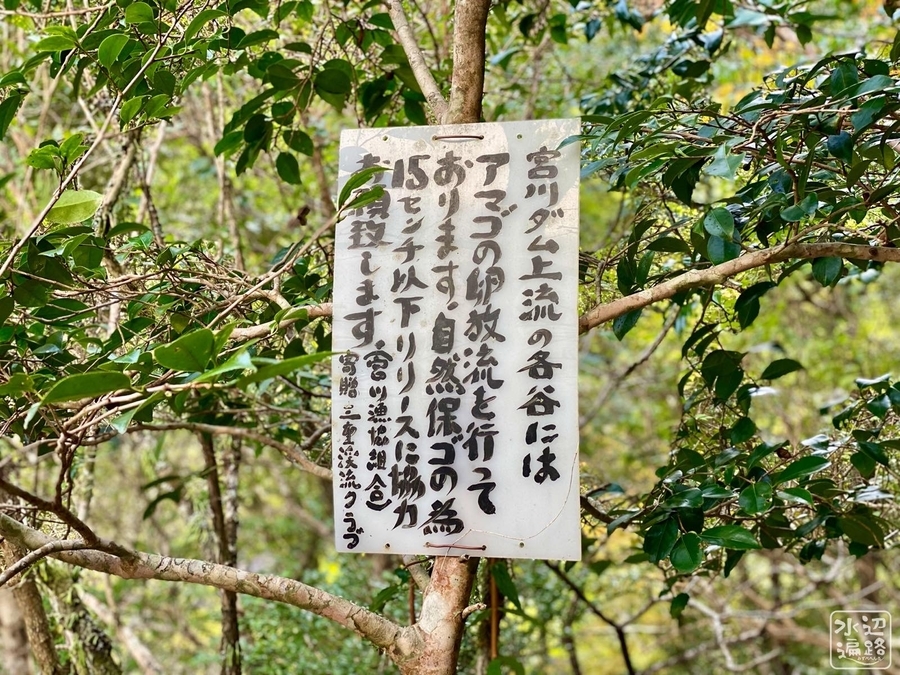 宮川ダム上流の各谷には
アマゴの卵放流を行って
おります。自然保ゴの為
15センチ以下リリースに協力
お願致します。
(宮川漁協組合)
寄贈 三重渓流クラブ
水辺遍路